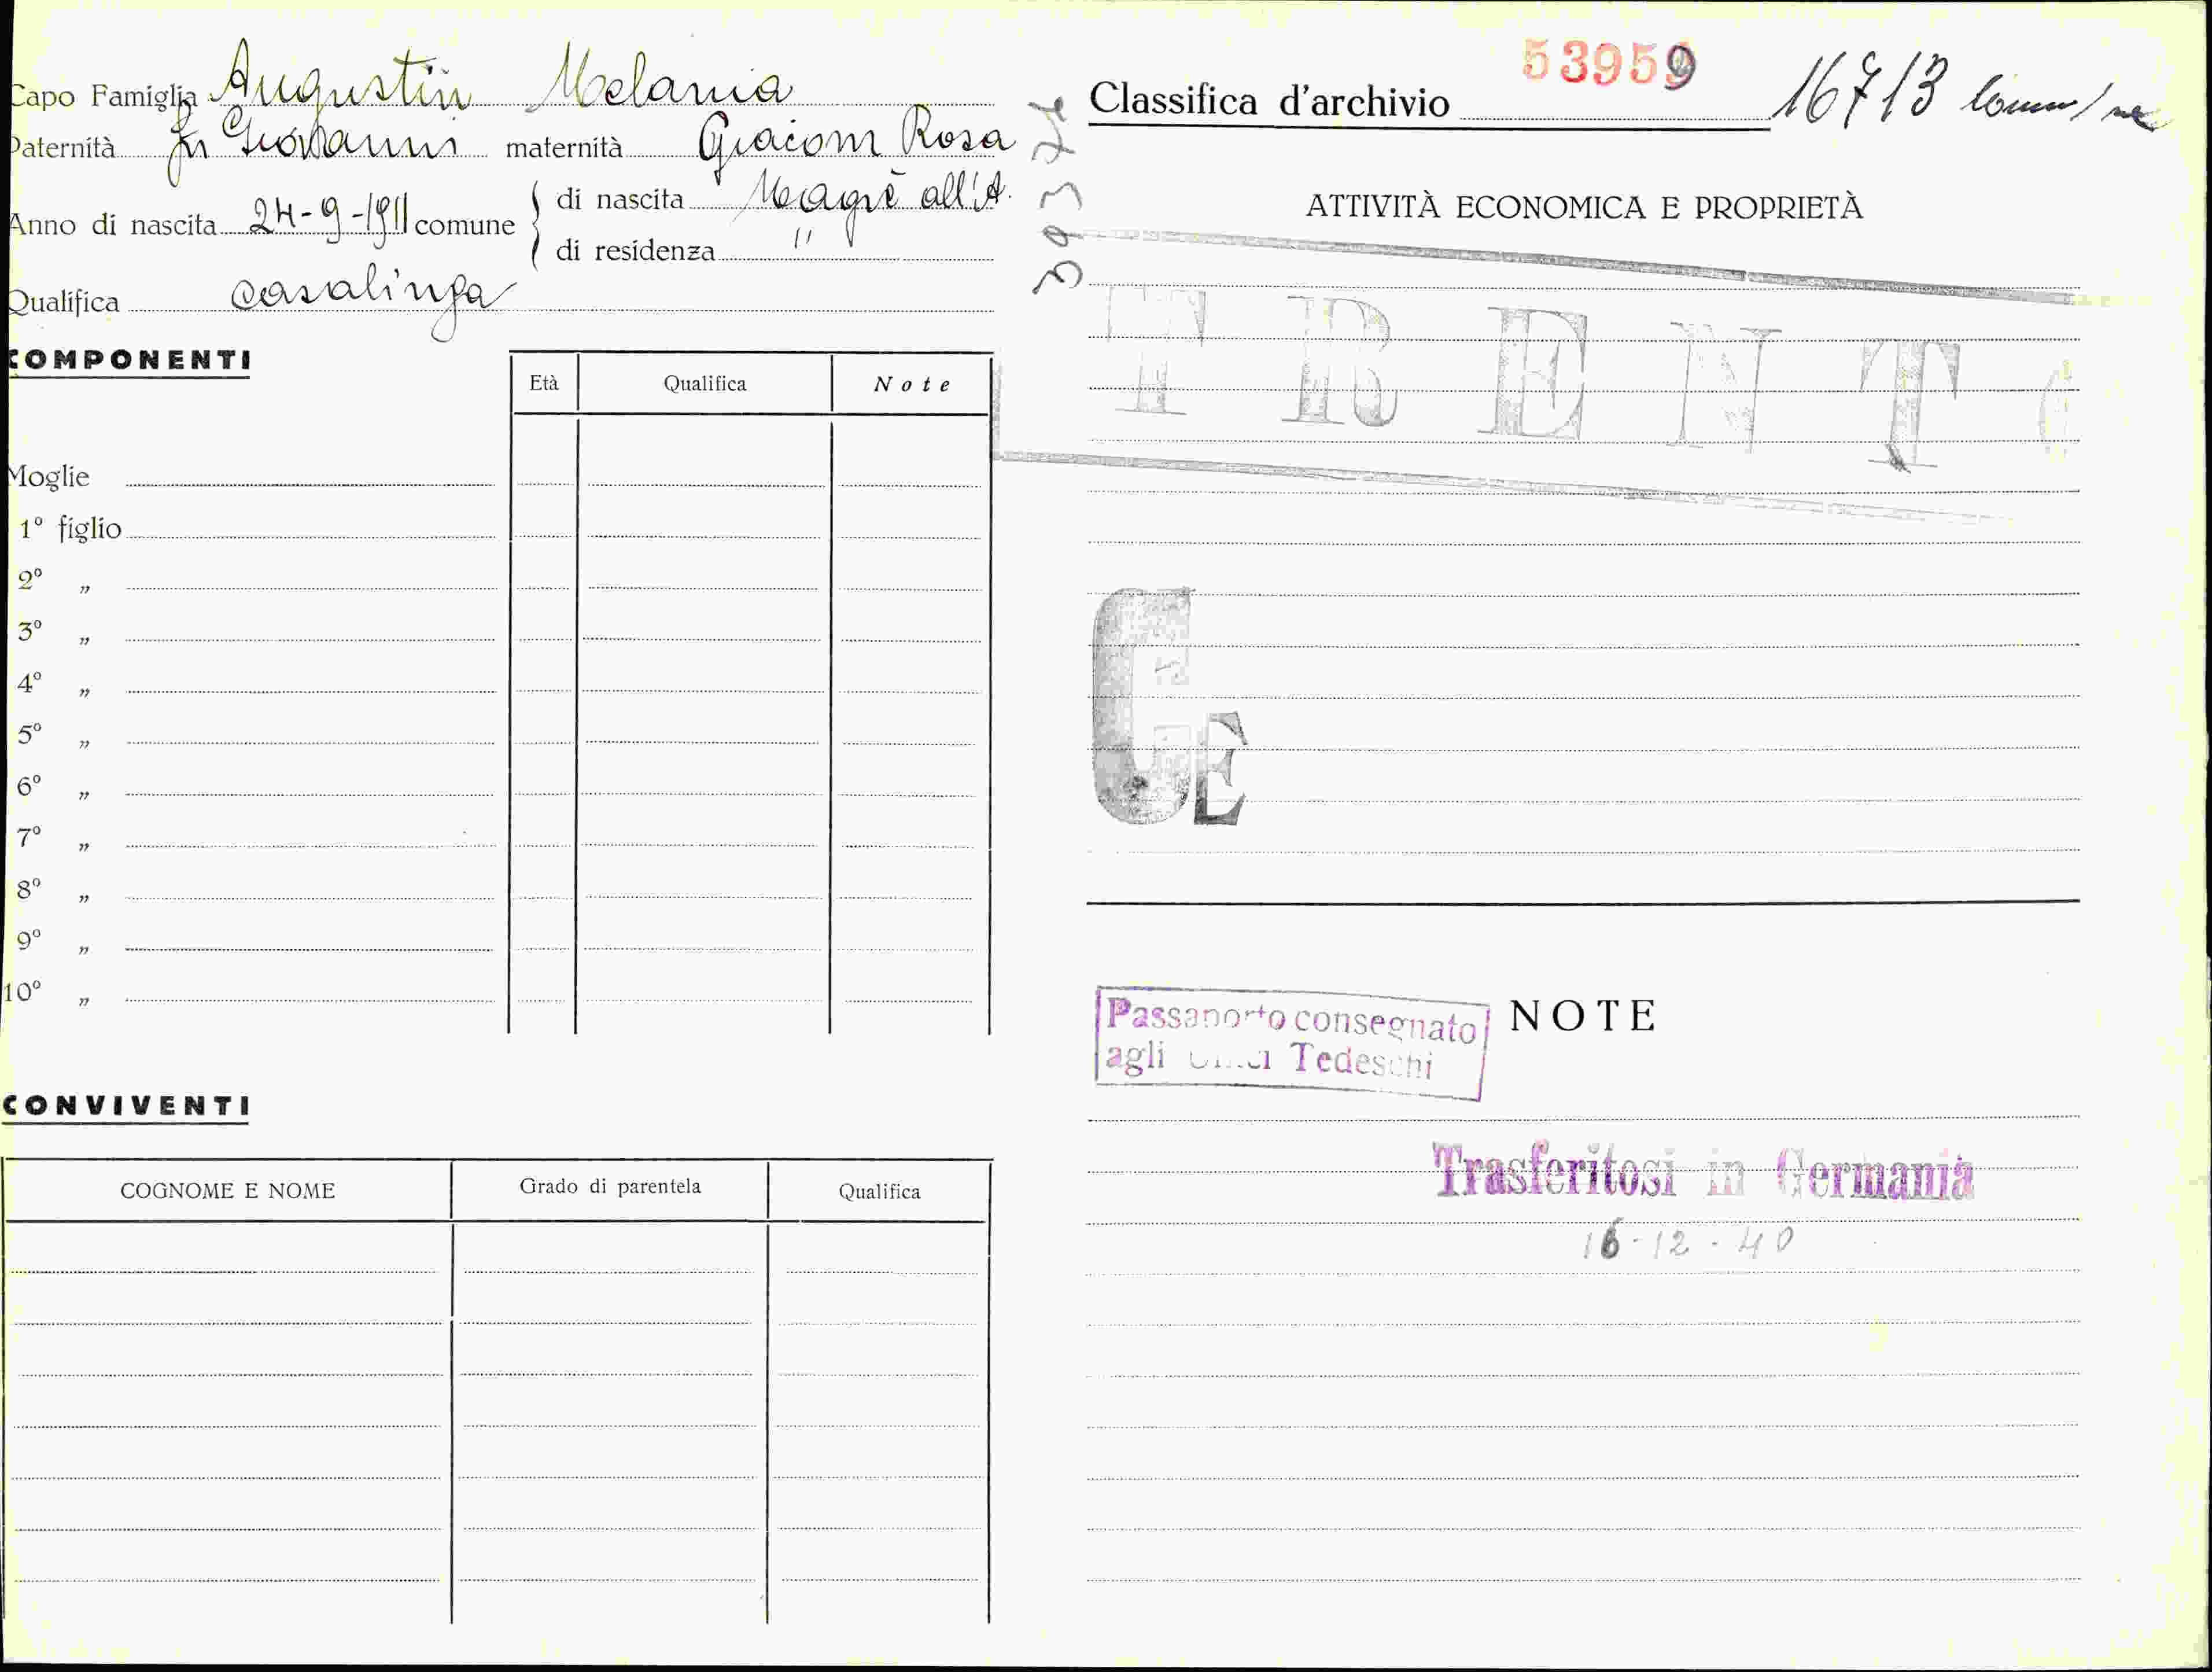 Capo Famiglia Augustin Melania
Paternità fu Giovanni maternità Giacom Rosa
Anno di nascita 24-9-1911 comune
di nascita Magrè all'A.
di residenza "
Qualifica casalinga
COMPONENTI
Età Qualifica Note
Moglie
1° figlio
2° "
3° "
4° "
5° "
6° "
7° "
8° "
9° "
10° "
CONVIVENTI
COGNOME E NOME Grado di parentela Qualifica
39374
53959
Classifica d'archivio 16713
ATTIVITÀ ECONOMICA E PROPRIETÀ
TRENTO
CE
Passaporto consegnato
agli Uffici Tedeschi
NOTE
Trasferitosi in Germania
16-12-40